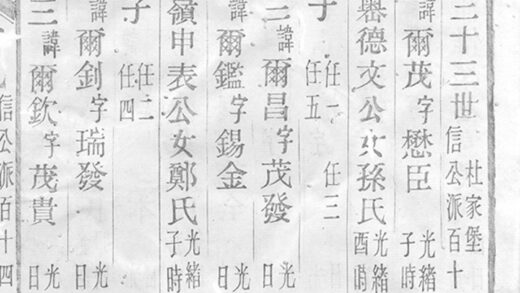 三十三世 杜家堡
信公派百十
諱爾茂字懋臣 光緒
子
舉德文公女孫氏 光緒
酉時
子 任一 任三
任五
諱爾昌字茂發 光
日
諱爾鑑字錫金 光
日
嶺申表公女鄭氏 光緒
子時
子 任二
任四
諱爾釗字瑞發 光
日
三諱爾欽字茂貴 光
日
信公派百十四